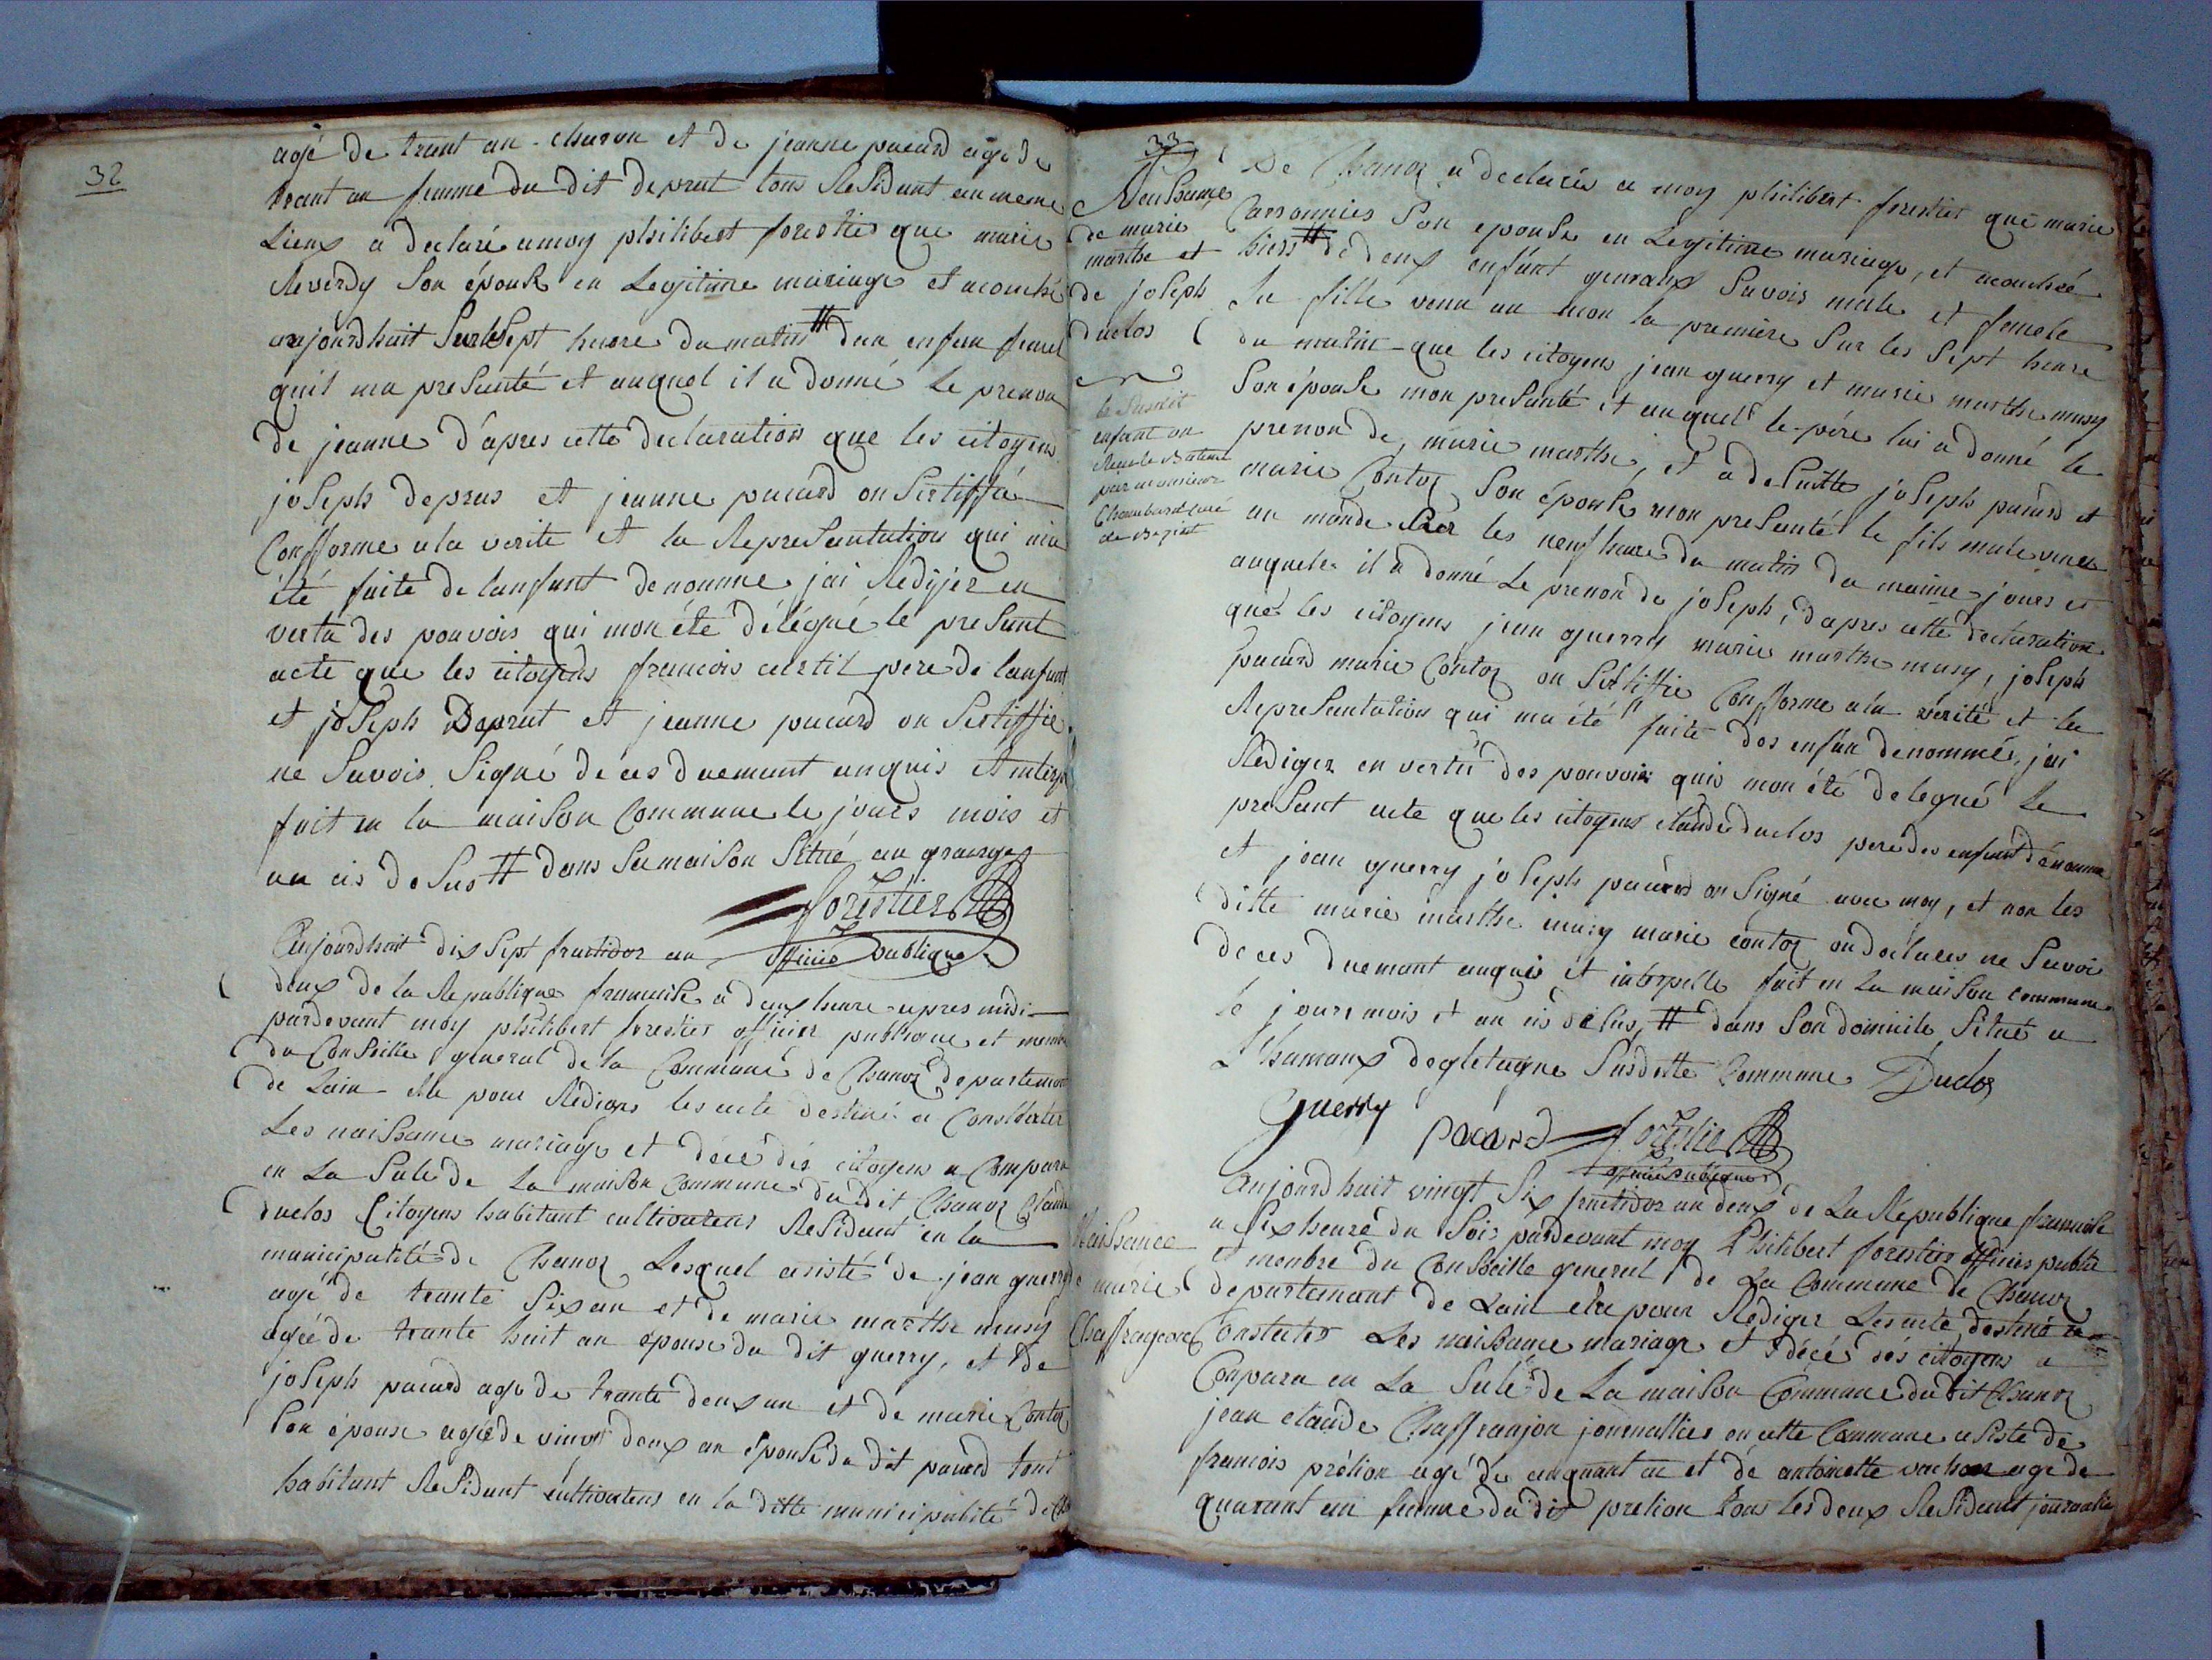 32
agé de trant an charon et de jeanne pacard agé de
trant an femme du dit deprat tous Residant au meme
Lieux a declaré a moy philibert forestier que marie
Reverdy Son épouse en Legitime mariage et acouché
aujourdhuit Sur le Sept heure du matin # dun enfan femel
quil ma presanté et auquel il a donné le prenon
de jeanne d'apres cette declaration que les citoyens
joseph depras et jeanne pacard on Sertiffié
Confforme a la verite et la Represantation qui ma
été faite de lanfant denomme jai Redijer en
vertu des pouvois qui mon été délégué le presant
acte que les citoyens francois curtil pere de lanfant
et joseph Deprat et jeanne pacard on Sertiffie
ne Savois Signé de ces duemant anquis et interp
fait en la maison Commune le jours mois et
an cis desus # dans sa maison Situé au granges
forestier
officié publique
Aujourdhuit dix Sept fructidor an
deux de la Republique francaise a deux heure apres midi
pardevant moy philibert forestier officier publique et membre
du Conseille general de la Commune de Chanoz departemant
de Lain elu pour Rediger les acte destiné a Constater
Les naissance mariage et décé dés citoyens a Compara
en La Sale de La maison Commune du dit Chanoz Claude
duclos Citoyens habitant cultivateur Residant en la
municipalité de Chanoz Lesquel asisté de jean guerry
agé de trante Six an et de marie marthe musy
agée de trante huit an épouse du dit guerry, et de
joseph pacard agé de trante deux an et de marie Contoz
Son épouse agée de vingt deux an épouse du dit pacard tout
habitant Residant cultivateur en la ditte municipalité de
33
Naissance
de marie
marthe et
de joseph
duclos
le Susdit
enfant on
Recu le Bateme
par monsieur
Chambard curé
de Beziat
De Chanoz a declarés a moy philibert forestier que marie
Carronnier Son epouse en Legitime mariage, et acouchée
hiers # de deux enfant gemaux Savois male et femele
La fille venu au mon la premiere Sur les Sept heure
du matin que les citoyens jean guerry et marie marthe musy
Son épouse mon presanté et auquel le pére lui a donné le
prenon de marie marthe, et a desuitte joseph pacard et
marie Contoz Son épouse mon presanté le fils male venu
au monde Sur les neuf heure du matin du maime jours et
auquele il a donné Le prenon de joseph, dapres cette declaration
que les citoyens jean guerry marie marthe musy, joseph
pacard marie Contoz on Sertiffie Confforme a la vérité et la
Represantation qui ma été faite dos enfan denommés, jai
Rediger en vertu des pouvoir qui mon été delegué Le
presant acte que les citoyens claude duclos pere des enfant dénomme
et jean guerry joseph pacard on Signé avec moy, et non les
ditte marie marthe musy marie contoz on declares ne Savoir
de ces duemant anquis et interpelle fait en La maison commune
le jours mois et an cis désus, # dans Son domicile Situé a
Lhamaux degletagne Susditte Commune Duclos
Guerry
pacard forestier
officié publique
Naissance
de marie
Chaffrageon
Aujourdhuit vingt Six fructidor an deux de La Republique francaise
a Six heure du Soir pardevant moy Philibert forestier officier public
et membre du Conseille general de La Commune de Chanoz
departemant de Lain elu pour Rediger Les acte destiné a
Constater Les naissance mariage et décé dés citoyens a
Conpara en La Sale de La maison Commune du dit Chanoz
jean claude Chaffranjon journallier en cette Commune asiste de
francois prélion agé de cinquant an et dé antoinette vachon agé de
quarant an femme du dit prelion tous les deux Residant journallie